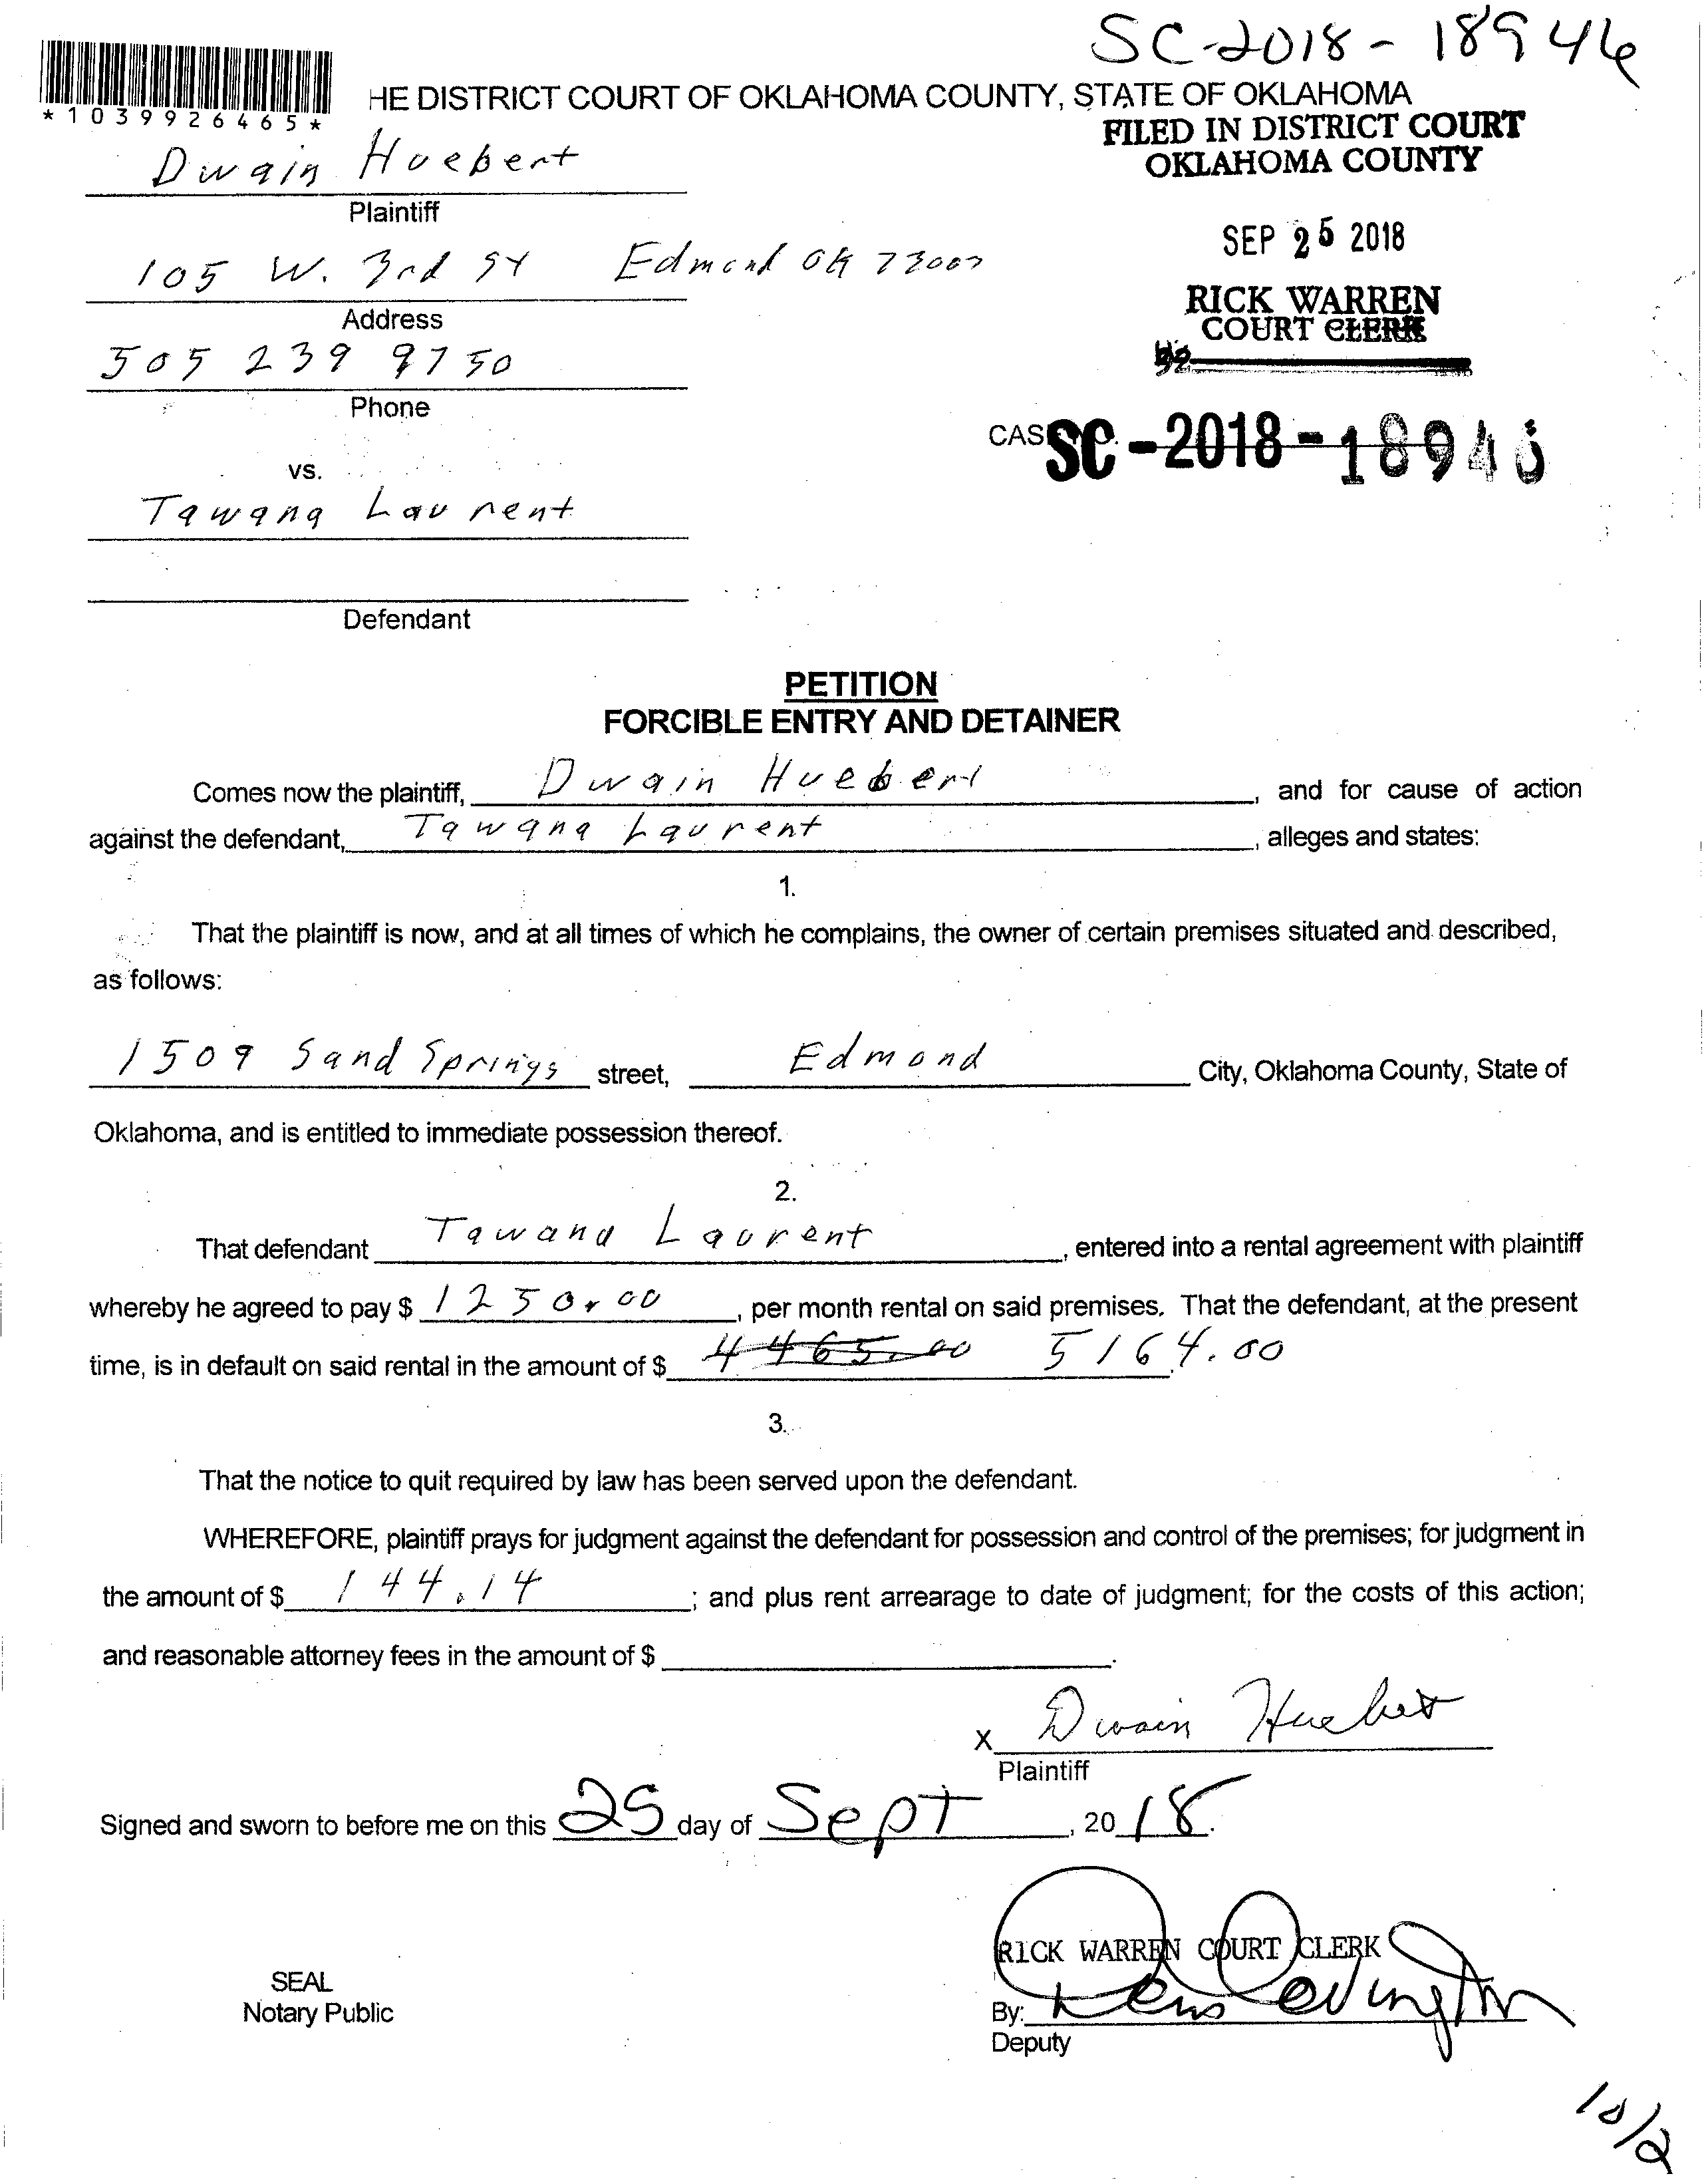 SC-2018-18946
*1039926465*
HE DISTRICT COURT OF OKLAHOMA COUNTY, STATE OF OKLAHOMA
FILED IN DISTRICT COURT
OKLAHOMA COUNTY
Dwain Huebert
Plaintiff
SEP 25 2018
105 W. 3rd St Edmond OK 73003
Address
RICK WARREN
COURT CLERK
505 239 9750
Phone
CAS
SC-2018-18946
vs.
Tawana Laurent
Defendant
PETITION
FORCIBLE ENTRY AND DETAINER
Comes now the plaintiff, Dwain Huebert, and for cause of action
against the defendant, Tawana Laurent, alleges and states:
1.
That the plaintiff is now, and at all times of which he complains, the owner of certain premises situated and described,
as follows:
1509 Sand Springs street, Edmond City, Oklahoma County, State of
Oklahoma, and is entitled to immediate possession thereof.
2.
That defendant Tawana Laurent, entered into a rental agreement with plaintiff
whereby he agreed to pay $ 1250.00, per month rental on said premises. That the defendant, at the present
time, is in default on said rental in the amount of $ 4465.00 5164.00.
3.
That the notice to quit required by law has been served upon the defendant.
WHEREFORE, plaintiff prays for judgment against the defendant for possession and control of the premises; for judgment in
the amount of $ 144.14; and plus rent arrearage to date of judgment; for the costs of this action;
and reasonable attorney fees in the amount of $ .
x Dwain Huebert
Plaintiff
Signed and sworn to before me on this 25 day of Sept, 2018.
RICK WARREN COURT CLERK
SEAL
Notary Public
By:
Deputy
10/2